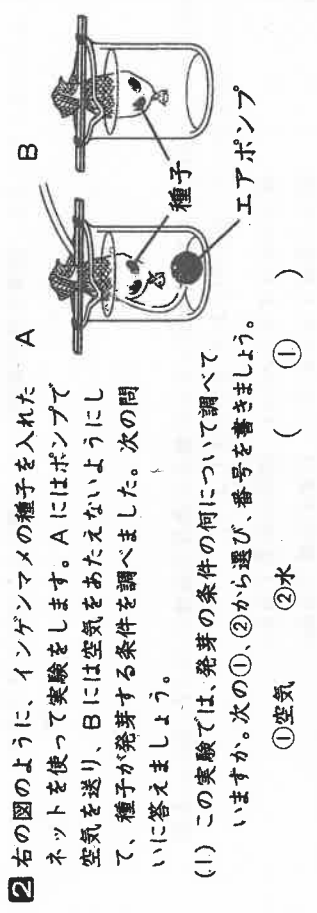 2 右の図のように、インゲンマメの種子を入れた
ネットを使って実験をします。Aにはポンプで
空気を送り、Bには空気をあたえないようにし
て、種子が発芽する条件を調べました。次の問
いに答えましょう。
A
B
種子
エアポンプ
(1) この実験では、発芽の条件の何について調べて
いますか。次の①、②から選び、番号を書きましょう。
①空気 ②水 ( ① )